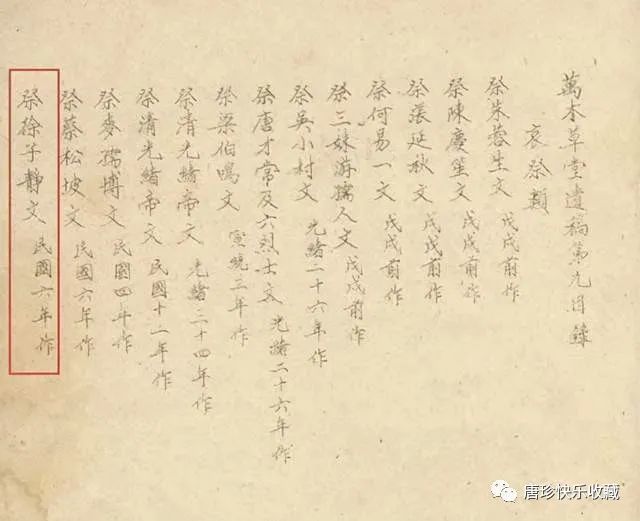 萬木草堂遺稿第九目錄
哀祭類
祭朱蓉生文 戊戌前作
祭陳慶笙文 戊戌前作
祭張延秋文 戊戌前作
祭何易一文 戊戌前作
祭三妹游孺人文 戊戌前作
祭吳小村文 光緒二十六年作
祭唐才常及六烈士文 光緒二十六年作
祭梁伯鳴文 宣統三年作
祭清光緒帝文 光緒三十四年作
祭清光緒帝文 民國十一年作
祭麥孺博文 民國四年作
祭蔡松坡文 民國六年作
祭徐子靜文 民國六年作
唐珍快乐收藏